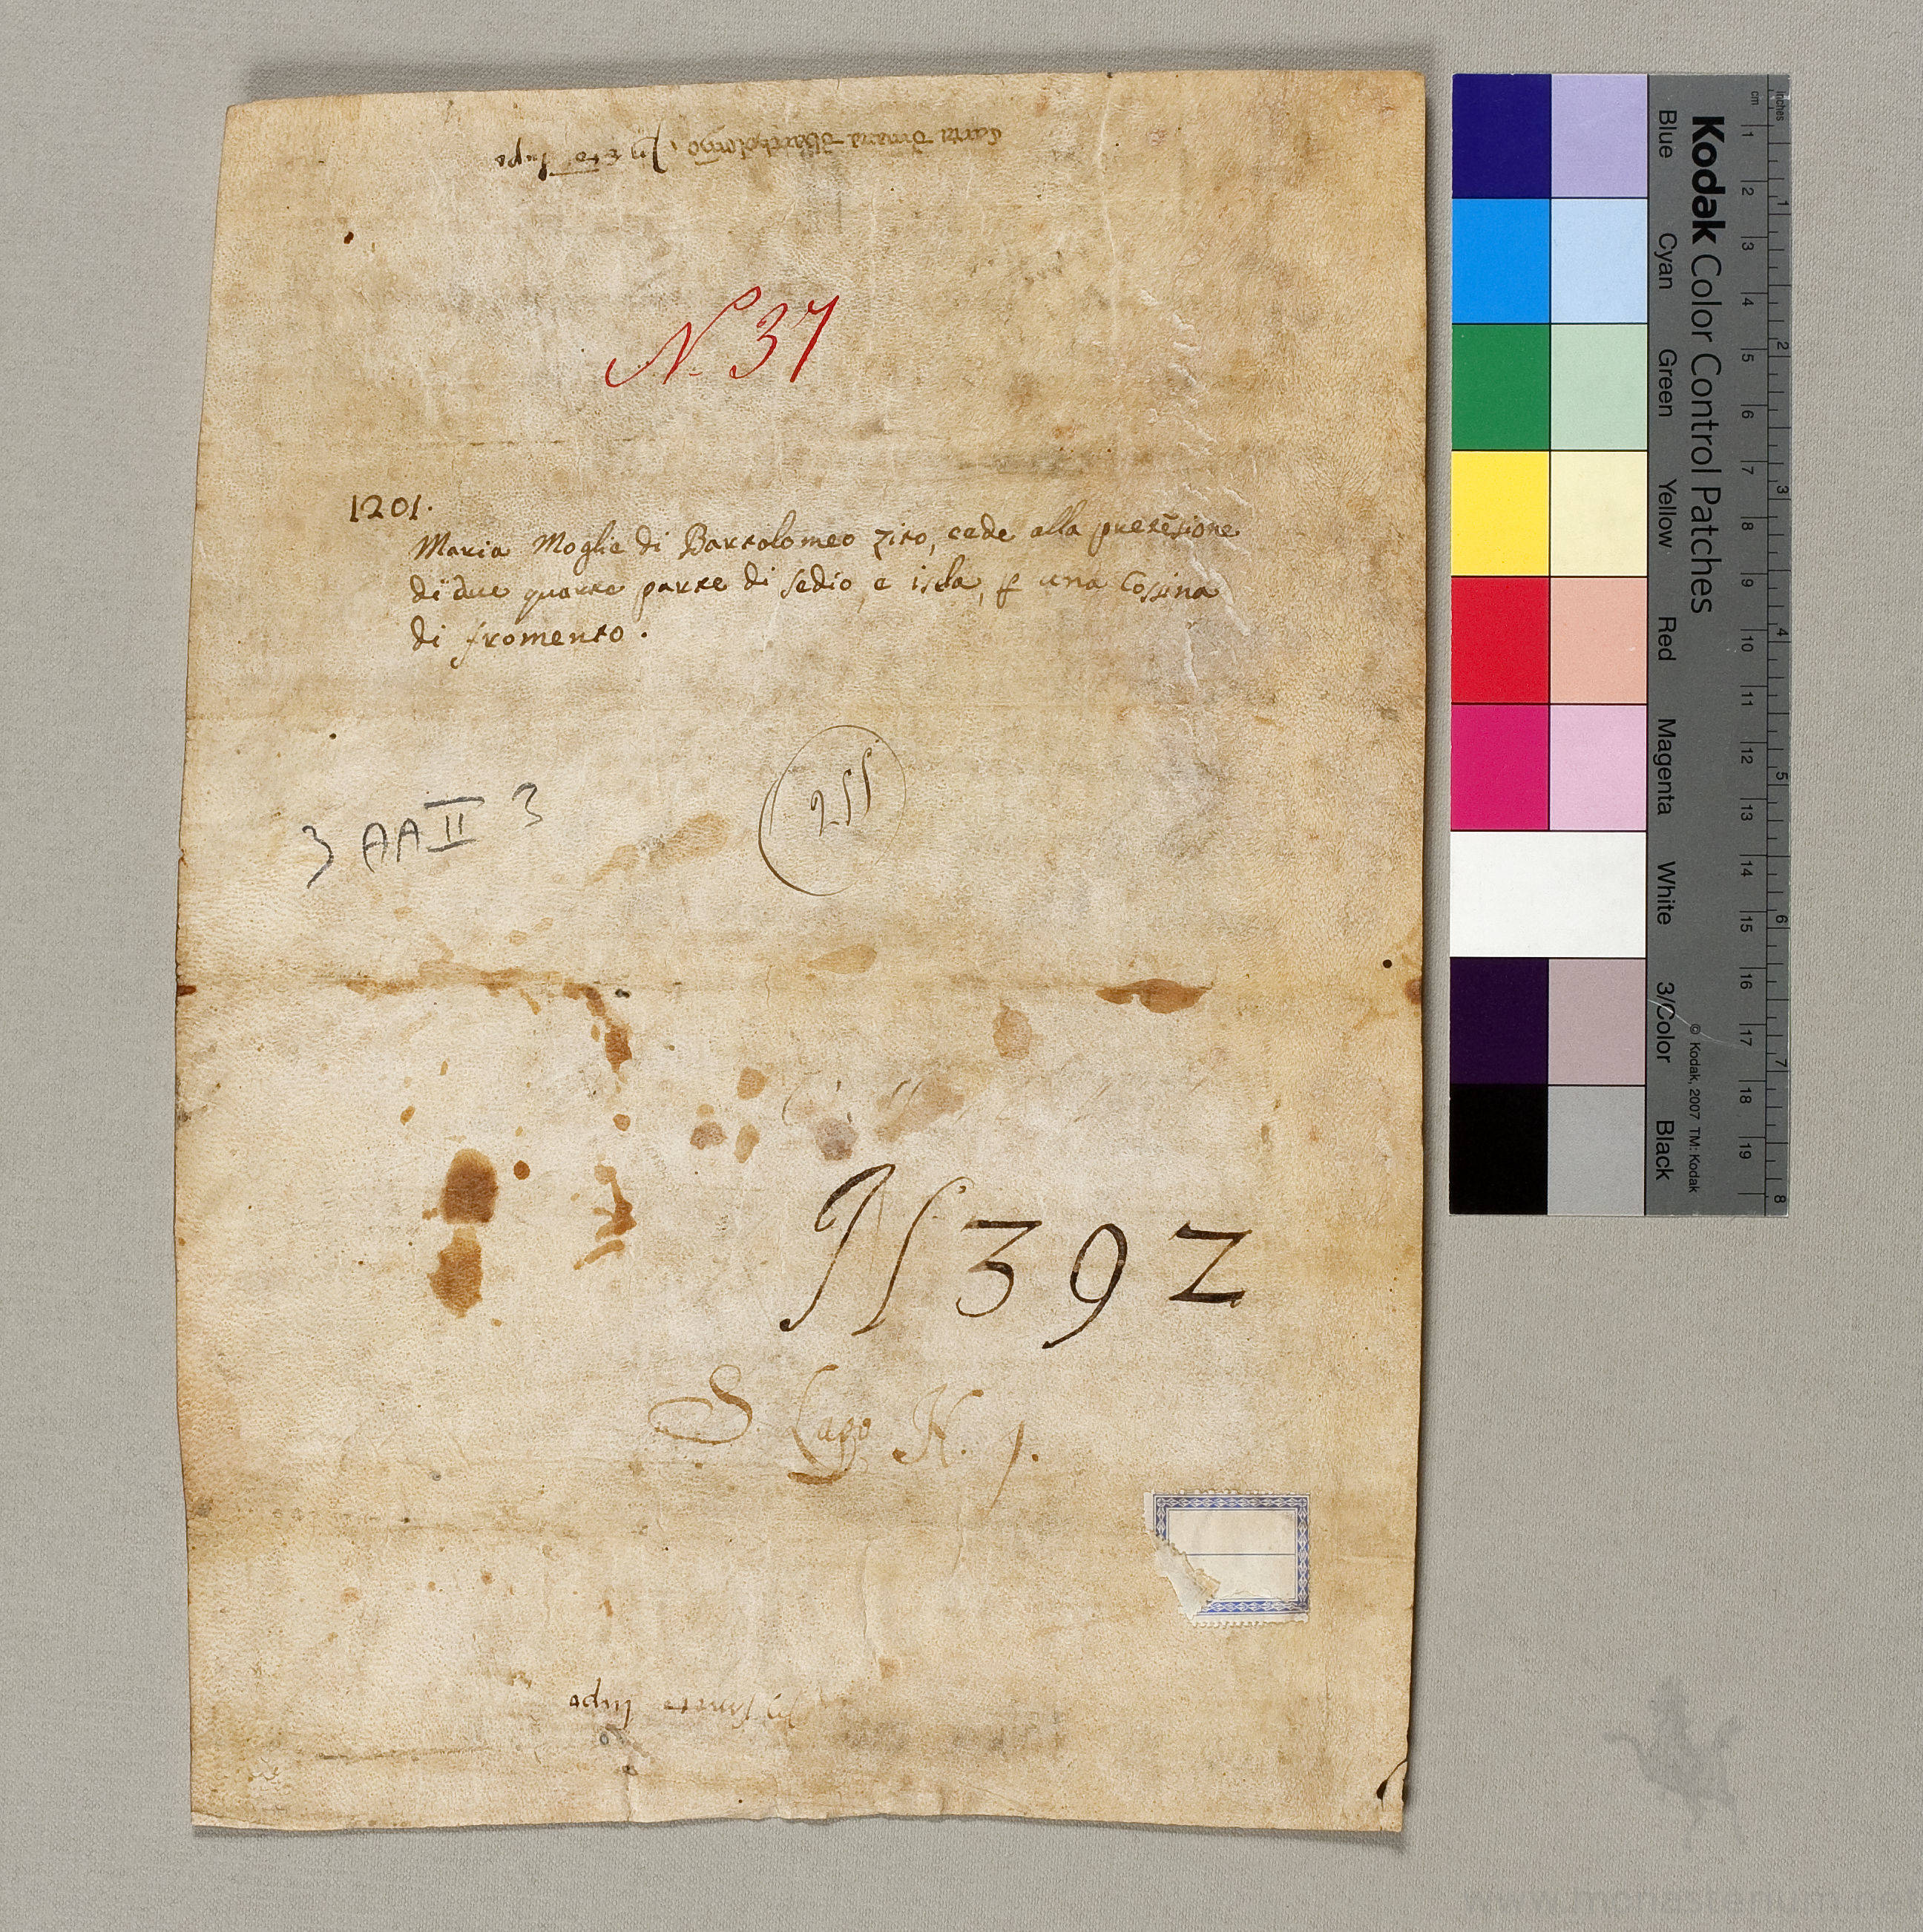 N. 37
1201.
Maria Moglie di Bartolomeo zito, cede alla pretẽsione
di due quarte parte di sedio, e iscla, ꝑ una Cossina
di fromento.
3 AA II 3
255
N 392
S. Lupo N. 1.
In sancto lupo
Kodak Color Control Patches
Blue Cyan Green Yellow Red Magenta White 3/Color Black
© Kodak, 2007 TM: Kodak
cm 1 2 3 4 5 6 7 8 9 10 11 12 13 14 15 16 17 18 19
inches 1 2 3 4 5 6 7 8
www.monasterium.net